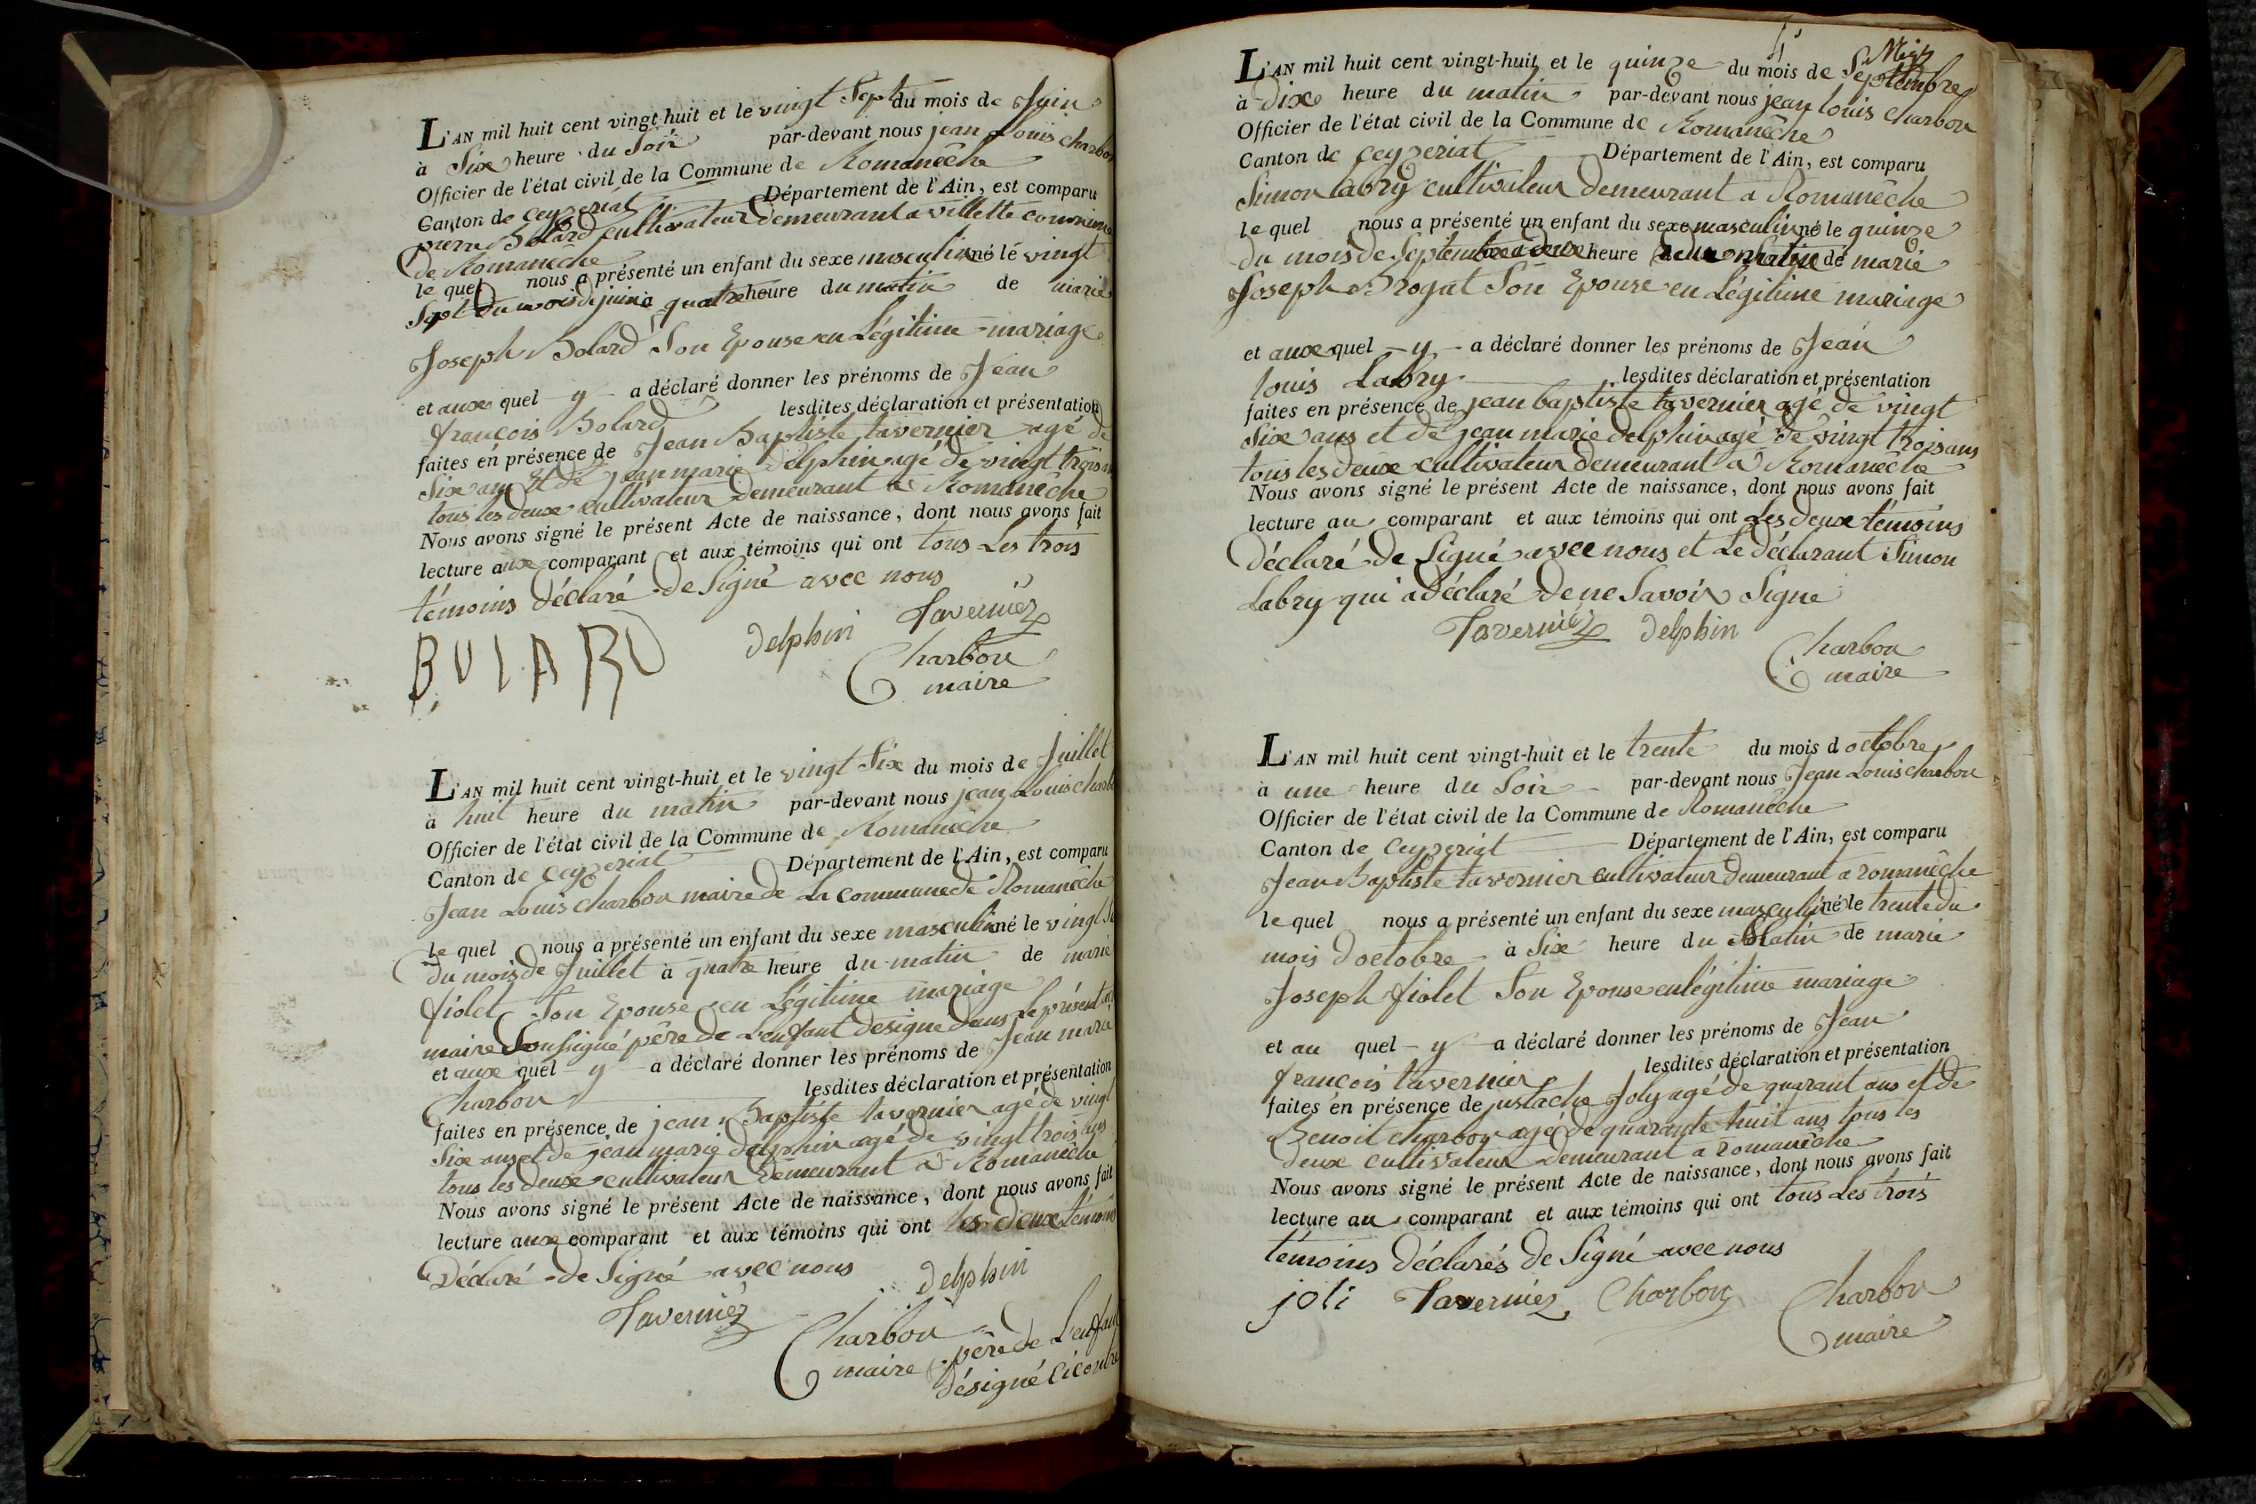 L'AN mil huit cent vingt-huit et le vingt Sept du mois de Juin
à Six heure du Soir par-devant nous jean Louis charbon
Officier de l'état civil de la Commune de Romanêche
Canton de ceyzeriat Département de l'Ain, est comparu
pierre Bolard cultivateur demeurant a villette commune
de Romanêche
le quel nous a présenté un enfant du sexe masculin né le vingt
Sept du mois de juin à quatre heure du matin de marie
Joseph Bolard Son Epouse en Légitime mariage
et aux quel y a déclaré donner les prénoms de Jean
françois Bolard lesdites déclaration et présentation
faites en présence de Jean Baptiste tavernier agé de
Six ans Et de jean marie delphin agé de vingt trois ans
tous les deux cultivateur demeurant a Romanêche
Nous avons signé le présent Acte de naissance, dont nous avons fait
lecture aux comparant et aux témoins qui ont tous Les trois
témoins déclaré de Signé avec nous
BULARD delphin Tavernier
Charbon
maire
L'AN mil huit cent vingt-huit et le vingt Six du mois de Juillet
à huit heure du matin par-devant nous jean Louis charbon
Officier de l'état civil de la Commune de Romanêche
Canton de ceyzeriat Département de l'Ain, est comparu
Jean Louis charbon maire de La commune de Romanêche
le quel nous a présenté un enfant du sexe masculin né le vingt
du mois de Juillet à quatre heure du matin de marie
fiolet Son Epouse en Légitime mariage
maire Sousigné père de L'enfant désigné dans Le présent
et aux quel y a déclaré donner les prénoms de Jean marie
Charbon lesdites déclaration et présentation
faites en présence de jean Baptiste tavernier agé de vingt
Six ans et de jean marie delphin agé de vingt trois ans
tous les deux cultivateur demeurant a Romanêche
Nous avons signé le présent Acte de naissance, dont nous avons fait
lecture aux comparant et aux témoins qui ont les deux témoins
Déclaré de Signé avec nous delphin
Tavernier
Charbon
maire père de L'enfant
désigné cicontre
Mey
L'AN mil huit cent vingt-huit et le quinze du mois de Septembre
à dix heure du matin par-devant nous jean louis charbon
Officier de l'état civil de la Commune de Romanêche
Canton de ceyzeriat Département de l'Ain, est comparu
Simon labry cultivateur demeurant a Romanêche
le quel nous a présenté un enfant du sexe masculin né le quinze
du mois de Septembre a deux heure du matin de marie
Joseph Brogat Son Epouse en Légitime mariage
et aux quel y a déclaré donner les prénoms de Jean
louis Labry lesdites déclaration et présentation
faites en présence de jean baptiste tavernier agé de vingt
Six ans et de jean marie delphin agé de vingt trois ans
tous les deux cultivateur demeurant a Romanêche
Nous avons signé le présent Acte de naissance, dont nous avons fait
lecture au comparant et aux témoins qui ont Les deux témoins
déclaré de Signé avec nous et Le déclarant Simon
Labry qui a déclaré de ne Savoir Signe
Tavernier delphin Charbon
maire
L'AN mil huit cent vingt-huit et le trente du mois d octobre
à une heure du Soir par-devant nous Jean Louis charbon
Officier de l'état civil de la Commune de Romanêche
Canton de Ceyzeriat Département de l'Ain, est comparu
Jean Baptiste tavernier cultivateur demeurant a romanêche
le quel nous a présenté un enfant du sexe masculin né le trente du
mois d octobre à Six heure du Matin de marie
Joseph fiolet Son Epouse en légitime mariage
et au quel y a déclaré donner les prénoms de Jean
françois tavernier lesdites déclaration et présentation
faites en présence de justache Joly agé de quarant ans et de
Benoit charbon agé de quarante huit ans tous les
deux cultivateur demeurant a romanêche
Nous avons signé le présent Acte de naissance, dont nous avons fait
lecture au comparant et aux témoins qui ont tous Les trois
témoins déclarés de Signé avec nous
joli Tavernier Charbon Charbon
maire